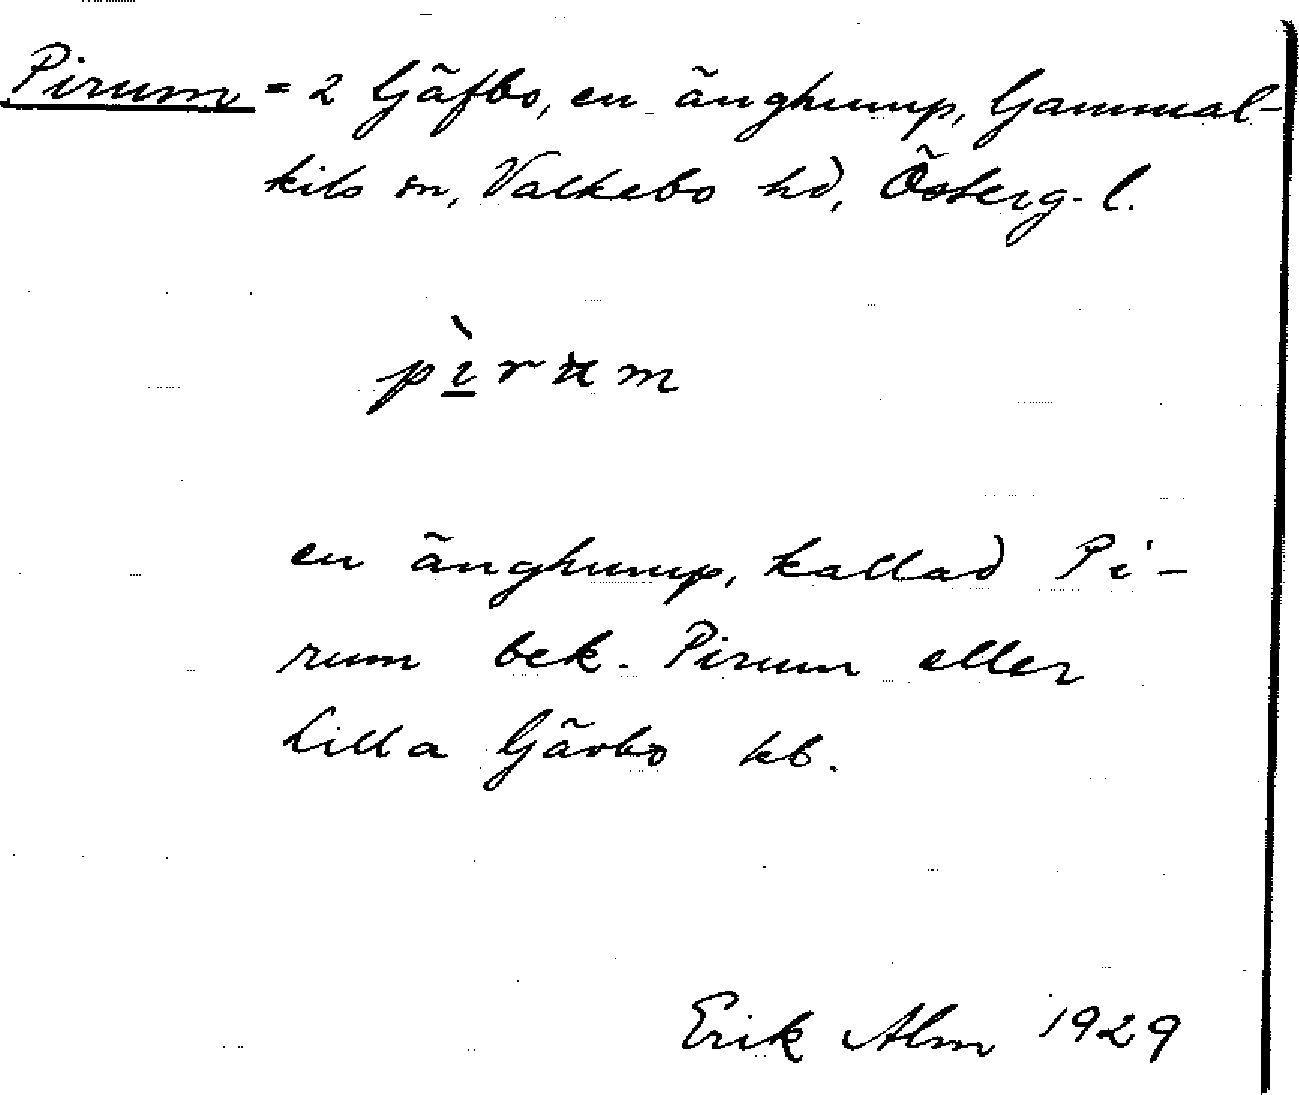 Pirum = 2 Gäfbo, en änghump, Gammal-
kils sn, Valkebo hd, Österg. l.
pìrum
en änghump, kallad Pi-
rum bek. Pirum eller
Lilla Gärbo kb.
Erik Alm 1929